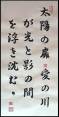 太陽の 愛の川
が光と影の間
を浮き沈む。